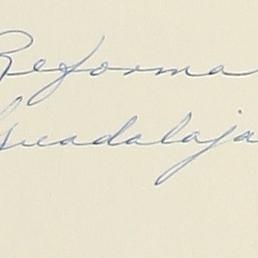 Reforma
Guadalaja